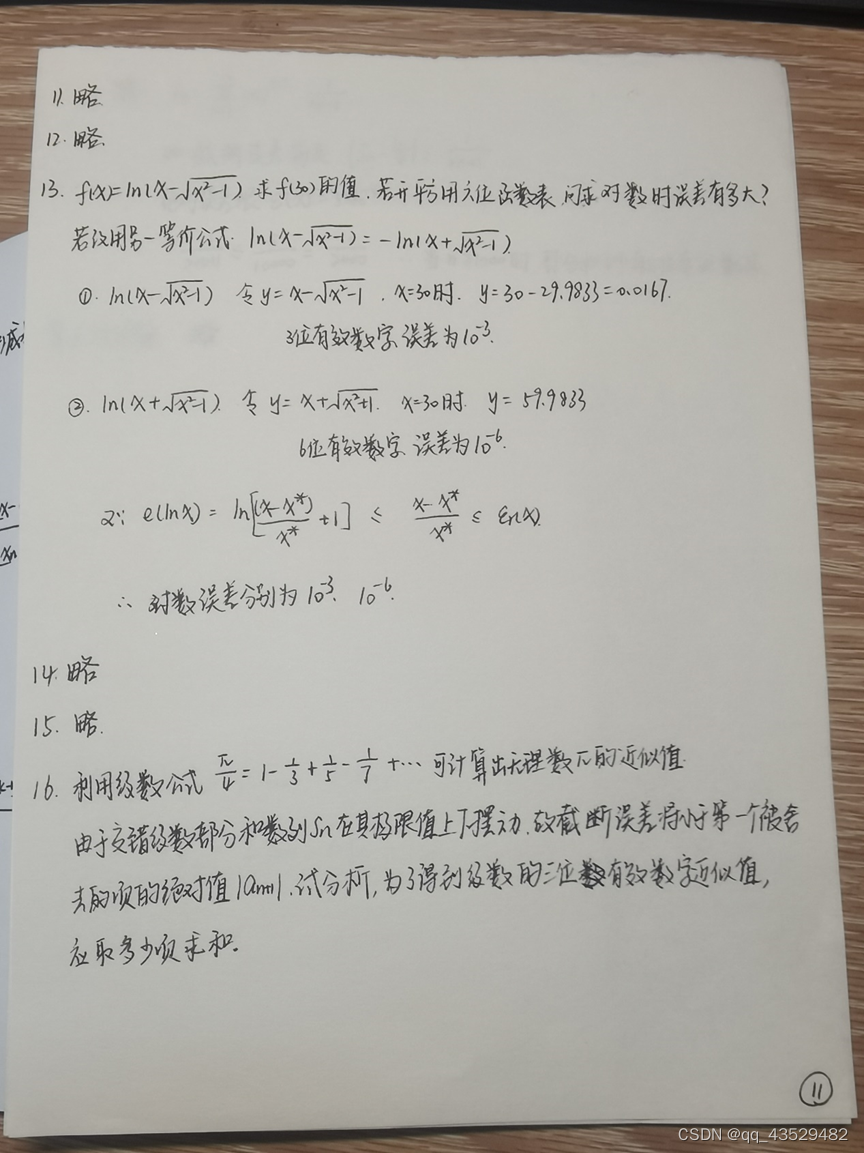 11. 略
12. 略
13. f(x)=ln(x-√(x²-1)) 求f(30)的值. 若开平方用六位函数表, 问求对数时误差有多大?
若改用另一等价公式. ln(x-√(x²-1)) = -ln(x+√(x²-1))
①. ln(x-√(x²-1)) 令y=x-√(x²-1). x=30时. y=30-29.9833=0.0167.
3位有效数字 误差为10⁻³.
②. ln(x+√(x²-1)) 令y=x+√(x²+1. x=30时. y=59.9833
6位有效数字 误差为10⁻⁶.
又∵ e(lnx) = ln[(x-x*)/x* +1] ≤ (x-x*)/x* ≤ εr(x).
∴ 对数误差分别为10⁻³. 10⁻⁶.
14. 略
15. 略.
16. 利用级数公式 π/4=1-1/3+1/5-1/7+⋯ 可计算出无理数π的近似值.
由于交错级数部分和数列Sn在其极限值上下摆动, 故截断误差将小于第一个被舍
去的项的绝对值|an+1|. 试分析, 为了得到级数的三位有效数字近似值,
应取多少项求和.
11
CSDN @qq_43529482